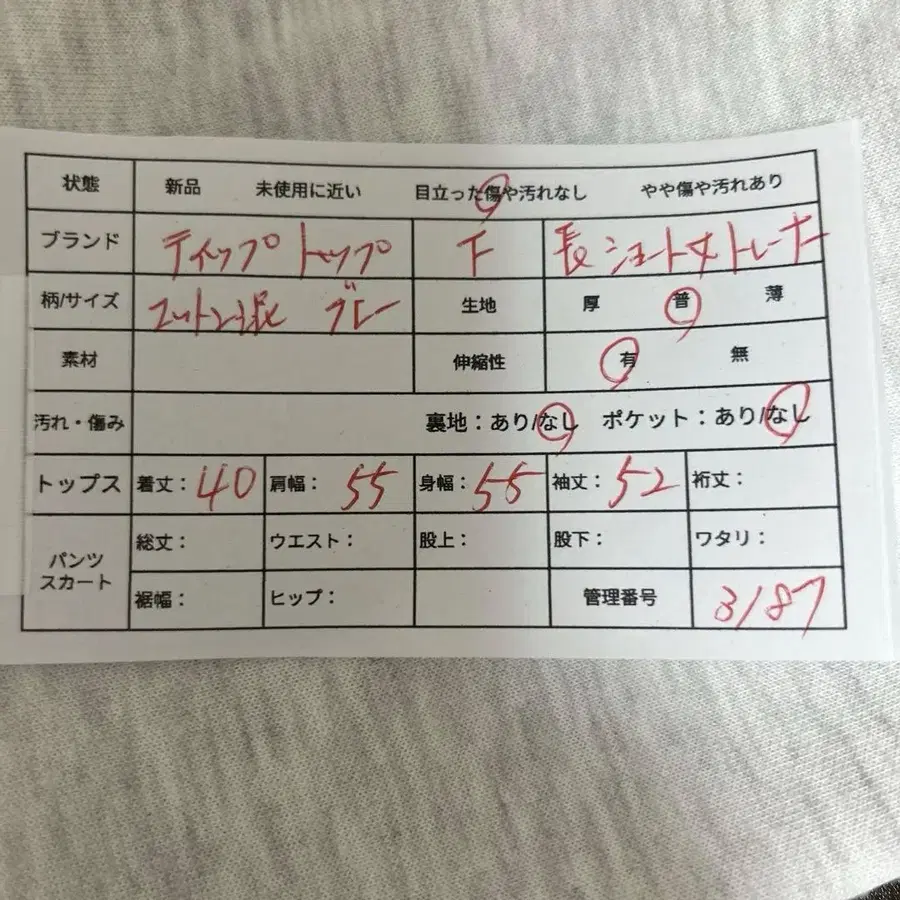 状態 新品 未使用に近い 目立った傷や汚れなし やや傷や汚れあり
ブランド ティップトップ F 長ショート丈トレーナー
柄/サイズ コットン混 グレー 生地 厚 普 薄
素材 伸縮性 有 無
汚れ・傷み 裏地：あり/なし ポケット：あり/なし
トップス 着丈：40 肩幅：55 身幅：55 袖丈：52 裄丈：
パンツ スカート 総丈： ウエスト： 股上： 股下： ワタリ：
裾幅： ヒップ： 管理番号 3187